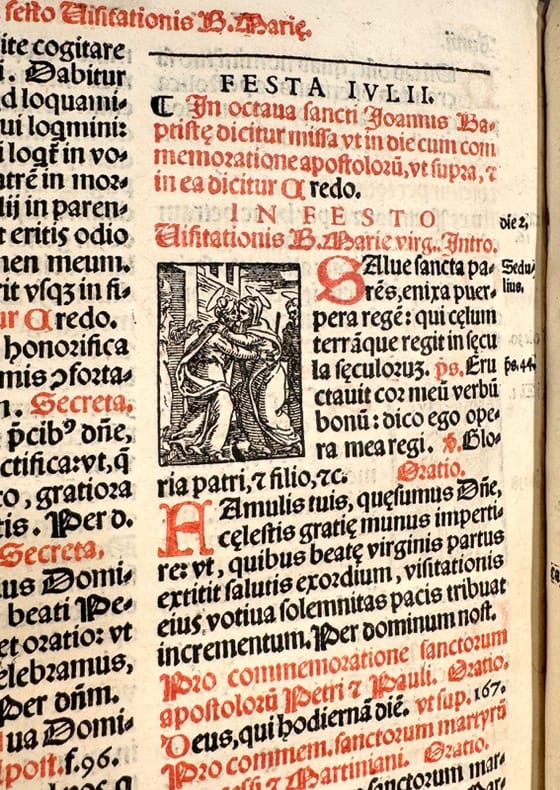 festo Uisitationis B. Marię.
ite cogitare
. Dabitur
d loquami⸗
ui logmini:
i logt̃ in vo⸗
trẽ in mor⸗
lij in paren⸗
t eritis odio
men meum.
rit vsqꝫ in fi⸗
ur Credo.
honorifica
mis ꝯforta⸗
n. Secreta.
p̃cib⁹ dñe,
ctifica:vt,q̃
co, gratiora
tis. Per d.
Secreta.
us Domi⸗
beati Pe⸗
et oratio: vt
elebramus,
Per dñm.
ua Domi⸗
post.f.96.
FESTA IVLII.
⸿ In octaua sancti Joannis Ba⸗
ptistę dicitur missa vt in die cum com
memoratione apostolorũ, vt supra, ⁊
in ea dicitur Credo.
IN FESTO
Uisitationis B. Marie virg. Intro.
die 2,
SAlue sancta pa⸗
Sedu⸗
rẽs, enixa puer⸗
lius.
pera regẽ: qui cęlum
terrãque regit in sęcu
la sęculoruꝫ. ps. Eru
ps. 44.
ctauit cor meũ verbũ
bonũ: dico ego ope⸗
ra mea regi. ℣. Glo⸗
ria patri, ⁊ filio, ⁊c. Oratio.
FAmulis tuis, quęsumus Dñe,
cęlestis gratię munus imperti⸗
re: vt, quibus beatę virginis partus
extitit salutis exordium, visitationis
eius votiua solemnitas pacis tribuat
incrementum. Per dominum nost.
Pro commemoratione sanctorum
apostolorũ Petri ⁊ Pauli. Oratio.
Deus, qui hodiernã diẽ. vt sup. 167.
Pro commem. sanctorum martyrũ
Martiniani. Oratio.
sanctorum mar⸗